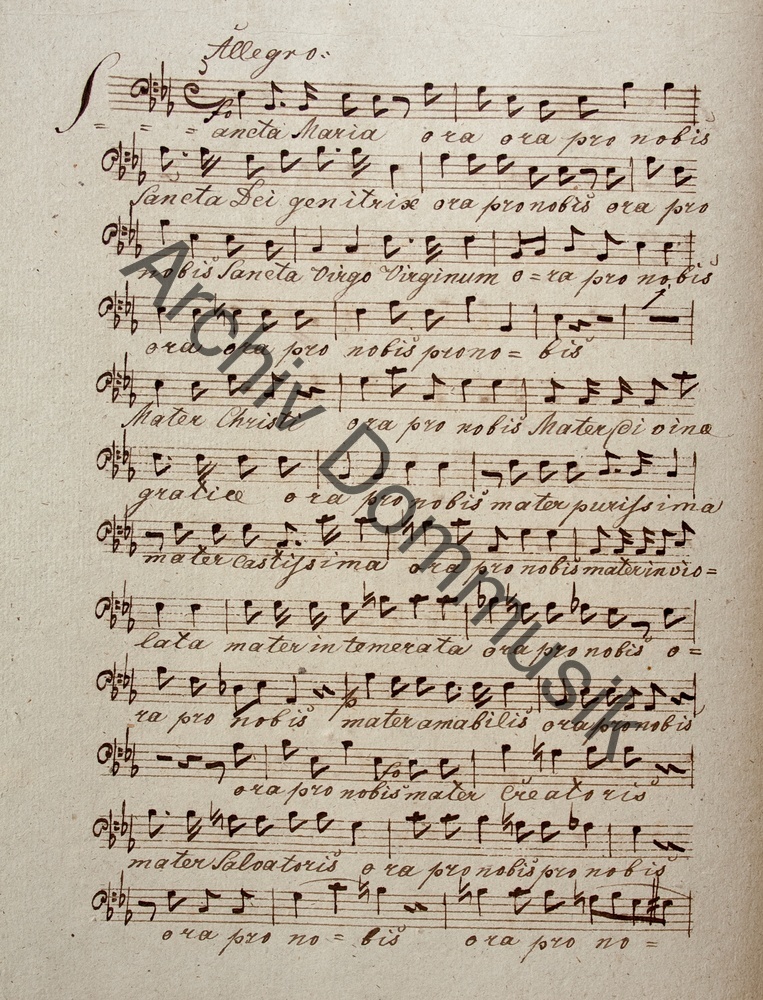 Allegro:
S = = = ancta Maria ora ora pro nobis
Sancta Dei genitrix ora pro nobis ora pro
nobis Sancta Virgo Virginum o=ra pro nobis
ora ora pro nobis prono= bis
Mater Christi ora pro nobis Mater Divinæ
gratiæ ora pro nobis mater purissima
mater castissima ora pro nobis mater invio=
lata mater intemerata ora pro nobis o=
ra pro nobis mater amabilis ora pro nobis
ora pro nobis mater Creatoris
mater Salvatoris ora pro nobis pro nobis
ora pro no= bis ora pro no=
Archiv Dommusik